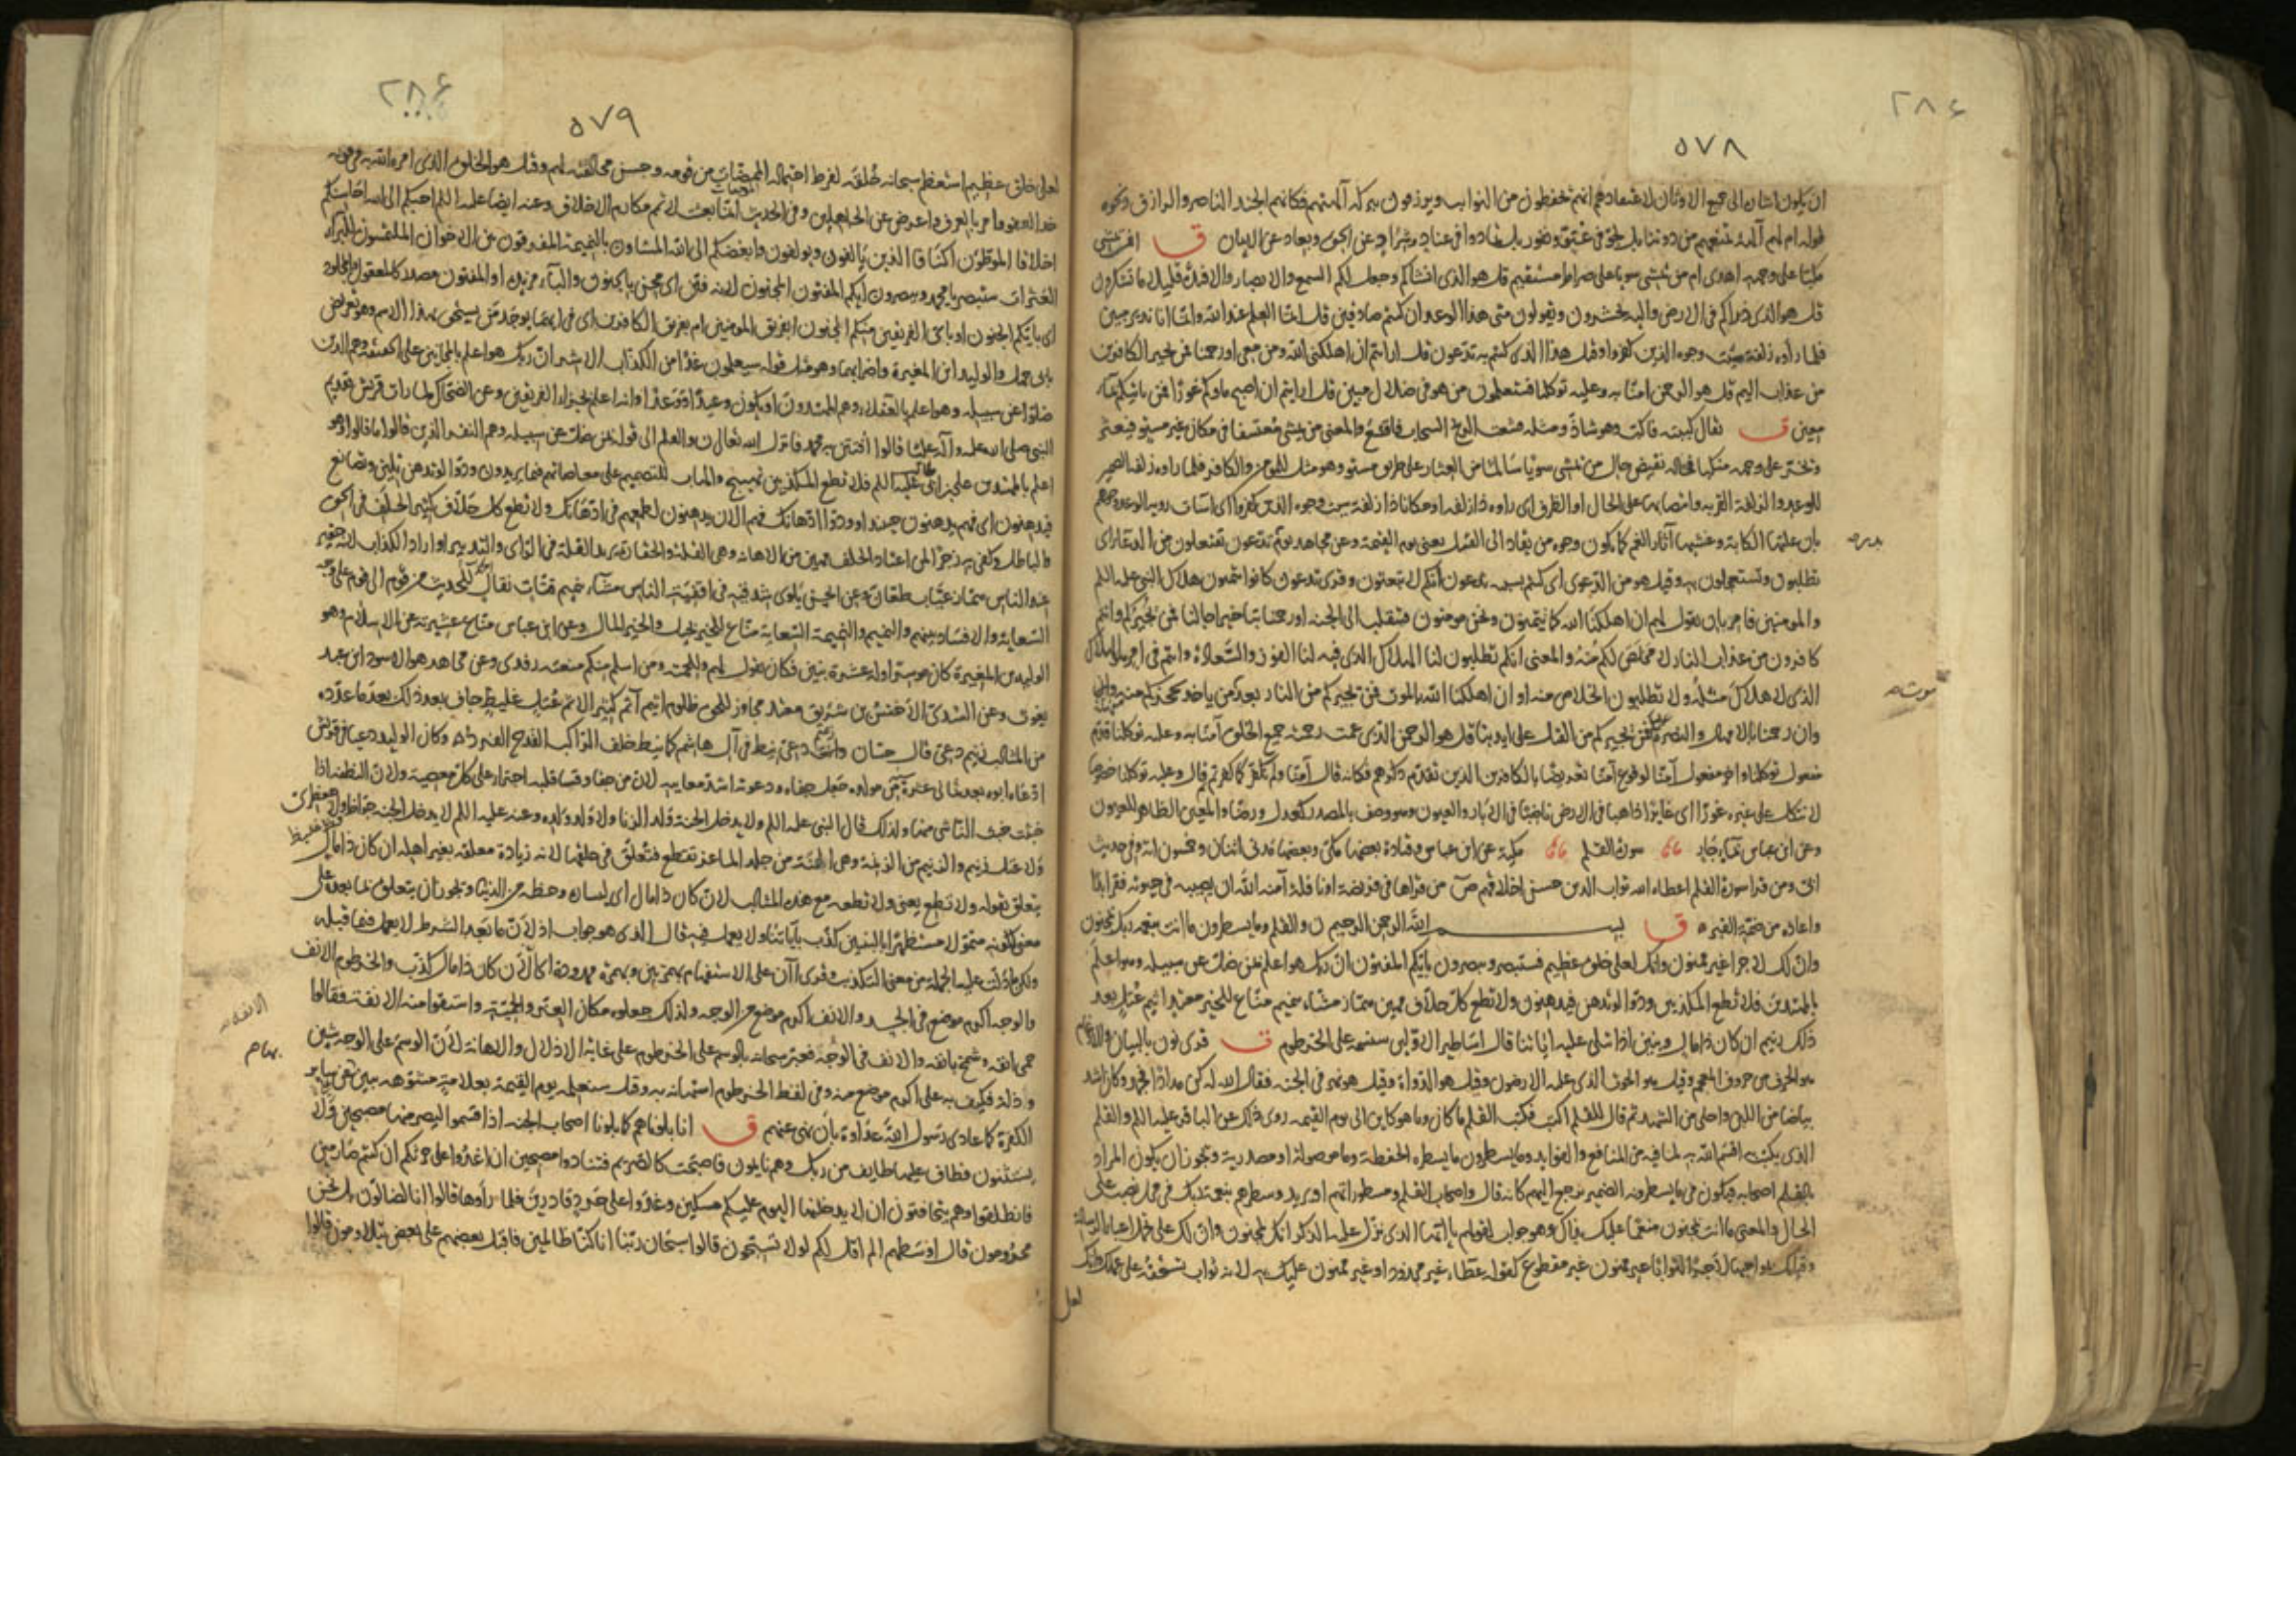 ٢٨٤
٥٧٨
ان يكون اشارة الى جميع الاوثان لاعتقادهم انهم يحفظون من النوايب ويرزقون ببركة آلهتهم فكانهم الجند الناصر والرازق ونحوه
قوله ام لهم آلهة تمنعهم من دوننا بل لجوا في عتو ونفور بل تمادوا في عناد وشراد عن الحق وبعاد عن الايمان ق افمن يمشي
مكبا على وجهه اهدى ام من يمشي سويا على صراط مستقيم قل هو الذي انشاكم وجعل لكم السمع والابصار والافئدة قليلا ما تشكرون
قل هو الذي ذراكم في الارض واليه تحشرون ويقولون متى هذا الوعد ان كنتم صادقين قل انما العلم عند الله وانما انا نذير مبين
فلما راوه زلفة سيئت وجوه الذين كفروا وقيل هذا الذي كنتم به تدعون قل ارايتم ان اهلكني الله ومن معي او رحمنا فمن يجير الكافرين
من عذاب اليم قل هو الرحمن امنا به وعليه توكلنا فستعلمون من هو في ضلال مبين قل ارايتم ان اصبح ماؤكم غورا فمن ياتيكم بماء
معين ق يقال كببته فاكب وهو شاذ ومثله قشعت الريح السحاب فاقشع والمعنى من يمشي معتسفا في مكان غير مستو فيعثر
ويخر على وجهه منكبا فحاله نقيض حال من يمشي سويا سالما من العثار على طريق مستو وهو مثل للمؤمن والكافر فلما راوه زلفة الضمير
للوعد والزلفة القربة وانتصابها على الحال او الظرف اى راوه ذا زلفة او مكانا ذا زلفة سيئت وجوه الذين كفروا اى اساءت روية الوعد وجوههم
بان علتها الكابة وغشيها آثار الغم كما يكون وجوه من يقاد الى القتل يعنى يوم القيمة وعن مجاهد يوم بدر تدعون تفتعلون من الدعاء اى
تطلبون وتستعجلون به وقيل هو من الدعوى اى كنتم بسببه تدعون انكم لا تبعثون وقرئ تدعون كانوا يتمنون هلاك النبي عليه السلم
والمومنين فامر بان يقول لهم ان اهلكنا الله كما تتمنون ونحن مومنون فننقلب الى الجنة او رحمنا بتاخير اجالنا فمن يجيركم وانتم
كافرون من عذاب النار لا مخلص لكم منه والمعنى انكم تطلبون لنا الهلاك الذي فيه لنا الفوز والسعادة وانتم في امر هو الهلاك
الذى لا هلاك مثله ولا تطلبون الخلاص منه او ان اهلكنا الله بالموت فمن يجيركم من النار بعد موت من ياخذ بحجزكم منها
وان رحمنا بالامهال والنصرة عليكم فمن يجيركم من القتل على ايدينا قل هو الرحمن الذي عمت رحمته جميع الخلق آمنا به وعليه توكلنا قدم
مفعول توكلنا واخر مفعول آمنا لوقوع آمنا تعريضا بالكافرين الذين تقدم ذكرهم فكانه قال آمنا ولم نكفر كما كفرتم ثم قال وعليه توكلنا خصوصا
لا نتكل على غيره غورا اى غايرا ذاهبا في الارض ناضبا في الآبار والعيون وهو وصف بالمصدر كعدل ورضا والمعين الظاهر للعيون
وعن ابن عباس بماء جار سورة القلم مكية عن ابن عباس وقتادة بعضها مكى وبعضها مدنى اثنتان وخمسون اية وفى حديث
ابى ومن قرا سورة القلم اعطاه الله ثواب الذين حسن اخلاقهم ص من قراها فى فريضة او نافلة آمنه الله ان يصيبه في حيوته فقر ابدا
واعاذه من ضمة القبر ق بسم الله الرحمن الرحيم ن والقلم وما يسطرون ما انت بنعمة ربك بمجنون
وان لك لاجرا غير ممنون وانك لعلى خلق عظيم فستبصر ويبصرون بايكم المفتون ان ربك هو اعلم بمن ضل عن سبيله وهو اعلم
بالمهتدين فلا تطع المكذبين ودوا لو تدهن فيدهنون ولا تطع كل حلاف مهين هماز مشاء بنميم مناع للخير معتد اثيم عتل بعد
ذلك زنيم ان كان ذا مال وبنين اذا تتلى عليه آياتنا قال اساطير الاولين سنسمه على الخرطوم ق قرئ نون بالبيان والادغام
هو الحرف من حروف المعجم وقيل هو الحوت الذي عليه الارضون وقيل هو الدواة وقيل هو نهر في الجنة فقال الله له كن مدادا فجمد وكان اشد
بياضا من اللبن واحلى من الشهد ثم قال للقلم اكتب فكتب القلم ما كان وما هو كاين الى يوم القيمة روى ذلك عن الباقر عليه السلم والقلم
الذي يكتب به اقسم الله به لما فيه من المنافع والفوايد وما يسطرون ما يسطره الحفظة وما موصولة او مصدرية ويجوز ان يكون المراد
بالقلم اصحابه فيكون فى ما يسطرون الضمير يرجع اليهم كانه قال واصحاب القلم ومسطوراتهم او يريد وسطرهم بنعمة ربك فى محل نصب على
الحال والمعنى ما انت بمجنون منعما عليك بذلك وهو جواب لقولهم يا ايها الذى نزل عليه الذكر انك لمجنون وان لك على تحمل اعباء الرسالة
وقيامك بواجبها لاجرا لثوابا غير ممنون غير مقطوع كقوله عطاء غير مجذوذ او غير ممنون عليك به لانه ثواب تستحقه على عملك وانك
بدر صح
موت صح
لعلى
٢٨٤
٥٧٩
لعلى خلق عظيم استعظم سبحانه خلقه لفرط احتماله الممضات من قومه وحسن مخالقته لهم وقيل هو الخلق الذي امره الله به في قوله
خذ العفو وامر بالعرف واعرض عن الجاهلين وفى الحديث انما بعثت لاتمم مكارم الاخلاق وعنه ايضا عليه السلم احبكم الى الله احاسنكم
اخلاقا الموطؤن اكنافا الذين يالفون ويولفون وابغضكم الى الله المشاؤن بالنميمة المفرقون بين الاخوان الملتمسون للبرآء
العثرات ستبصر يا محمد ويبصرون ايكم المفتون المجنون لانه فتن اى محن بالجنون والباء مزيدة او المفتون مصدر كالمعقول والمجلود
اى بايكم الجنون او باى الفريقين منكم المجنون ابفريق المومنين ام بفريق الكافرين اى فى ايهما يوجد من يستحق هذا الاسم وهو تعريض
بابى جهل والوليد ابن المغيرة واضرابهما وهو مثل قوله سيعلمون غدا من الكذاب الاشر ان ربك هو اعلم بالمجانين على الحقيقة وهم الذين
ضلوا عن سبيله وهو اعلم بالعقلاء وهم المهتدون او يكون وعيدا ووعدا وانه اعلم بجزاء الفريقين وعن الضحاك لما رات قريش تقديم
النبى صلى الله عليه وآله عليا قالوا افتتن به محمد فانزل الله تعالى ن والقلم الى قوله بمن ضل عن سبيله وهم النفر الذين قالوا ما قالوا وهو
اعلم بالمهتدين على بن ابى طالب عليه السلم فلا تطع المكذبين تهييج والهاب للتصميم على معاصاتهم فيما يريدون ودوا لو تدهن تلين وتصانع
فيدهنون اى فهم يدهنون حينئذ او ودوا ادهانك فهم الان يدهنون لطمعهم فى ادهانك ولا تطع كل حلاف كثير الحلف فى الحق
والباطل وكفى به زجرا لمن اعتاد الحلف مهين من المهانة وهى القلة والحقارة يريد القلة فى الراى والتدبير او اراد الكذاب لانه حقير
عند الناس هماز عياب طعان وعن الحسن يلوى شدقيه فى اقفية الناس مشاء بنميم قتات نقال للحديث من قوم الى قوم على وجه
السعاية والافساد بينهم والنميم والنميمة السعاية مناع للخير بخيل والخير المال وعن ابن عباس مناع عشيرته عن الاسلام وهو
الوليد بن المغيرة كان موسرا وله عشرة بنين فكان يقول لهم وللحمته من اسلم منكم منعته رفدى وعن مجاهد هو الاسود ابن عبد
يغوث وعن السدى الاخنس بن شريق معتد مجاوز للحق ظلوم اثيم آثم كثير الاثم عتل غليظ جاف بعد ذلك بعد ما عد له
من المثالب زنيم دعى قال حسان وانت زنيم نيط فى آل هاشم كما نيط خلف الراكب القدح الفرد وكان الوليد دعيا فى قريش
ادعاه ابوه بعد ثمانى عشرة من مولده جعل جفاءه ودعوته اشد معايبه لان من جفا وقسا قلبه اجترا على كل معصية ولان النطفة اذا
خبثت خبث الناشى منها ولذلك قال النبى عليه السلم لا يدخل الجنة ولد الزنا ولا ولده ولا ولد ولده وعنه عليه السلم لا يدخل الجنة جواظ ولا جعظرى
ولا عتل زنيم والزنيم من الزنمة وهى الهنة من جلد الماعز تقطع فتعلق فى حلقها لانه زيادة معلقة بغير اهله ان كان ذا مال
يتعلق بقوله ولا تطع يعنى ولا تطعه مع هذه المثالب لان كان ذا مال اى ليساره وحظه من الدنيا ويجوز ان يتعلق بما بعده على
معنى لكونه متمولا مستظهرا بالبنين كذب بآياتنا ولا يعمل فيه قال الذى هو جواب اذا لان ما بعد الشرط لا يعمل فيما قبله
ولكن ما دلت عليه الجملة من معنى التكذيب وقرئ اان على الاستفهام بهمزتين وبهمزة ممدودة اى الان كان ذا مال كذب والخرطوم الانف
والوجه اكرم موضع فى الجسد والانف اكرم موضع من الوجه ولذلك جعلوه مكان العز والحمية واشتقوا منه الانفة فقالوا
حمى انفه وشمخ بانفه والانف فى الوجه فعبر سبحانه بالوسم على الخرطوم على غاية الاذلال والاهانة لان الوسم على الوجه شين
واذلة فكيف به على اكرم موضع منه وفى لفظ الخرطوم استهانة به وقيل سنعلمه يوم القيمة بعلامة مشوهة يبين بها عن ساير
الكفرة كما عادى رسول الله عداوة بان بها عنهم ق انا بلوناهم كما بلونا اصحاب الجنة اذ اقسموا ليصرمنها مصبحين ولا
يستثنون فطاف عليها طايف من ربك وهم نايمون فاصبحت كالصريم فتنادوا مصبحين ان اغدوا على حرثكم ان كنتم صارمين
فانطلقوا وهم يتخافتون ان لا يدخلنها اليوم عليكم مسكين وغدوا على حرد قادرين فلما راوها قالوا انا لضالون بل نحن
محرومون قال اوسطهم الم اقل لكم لولا تسبحون قالوا سبحان ربنا انا كنا ظالمين فاقبل بعضهم على بعض يتلاومون قالوا